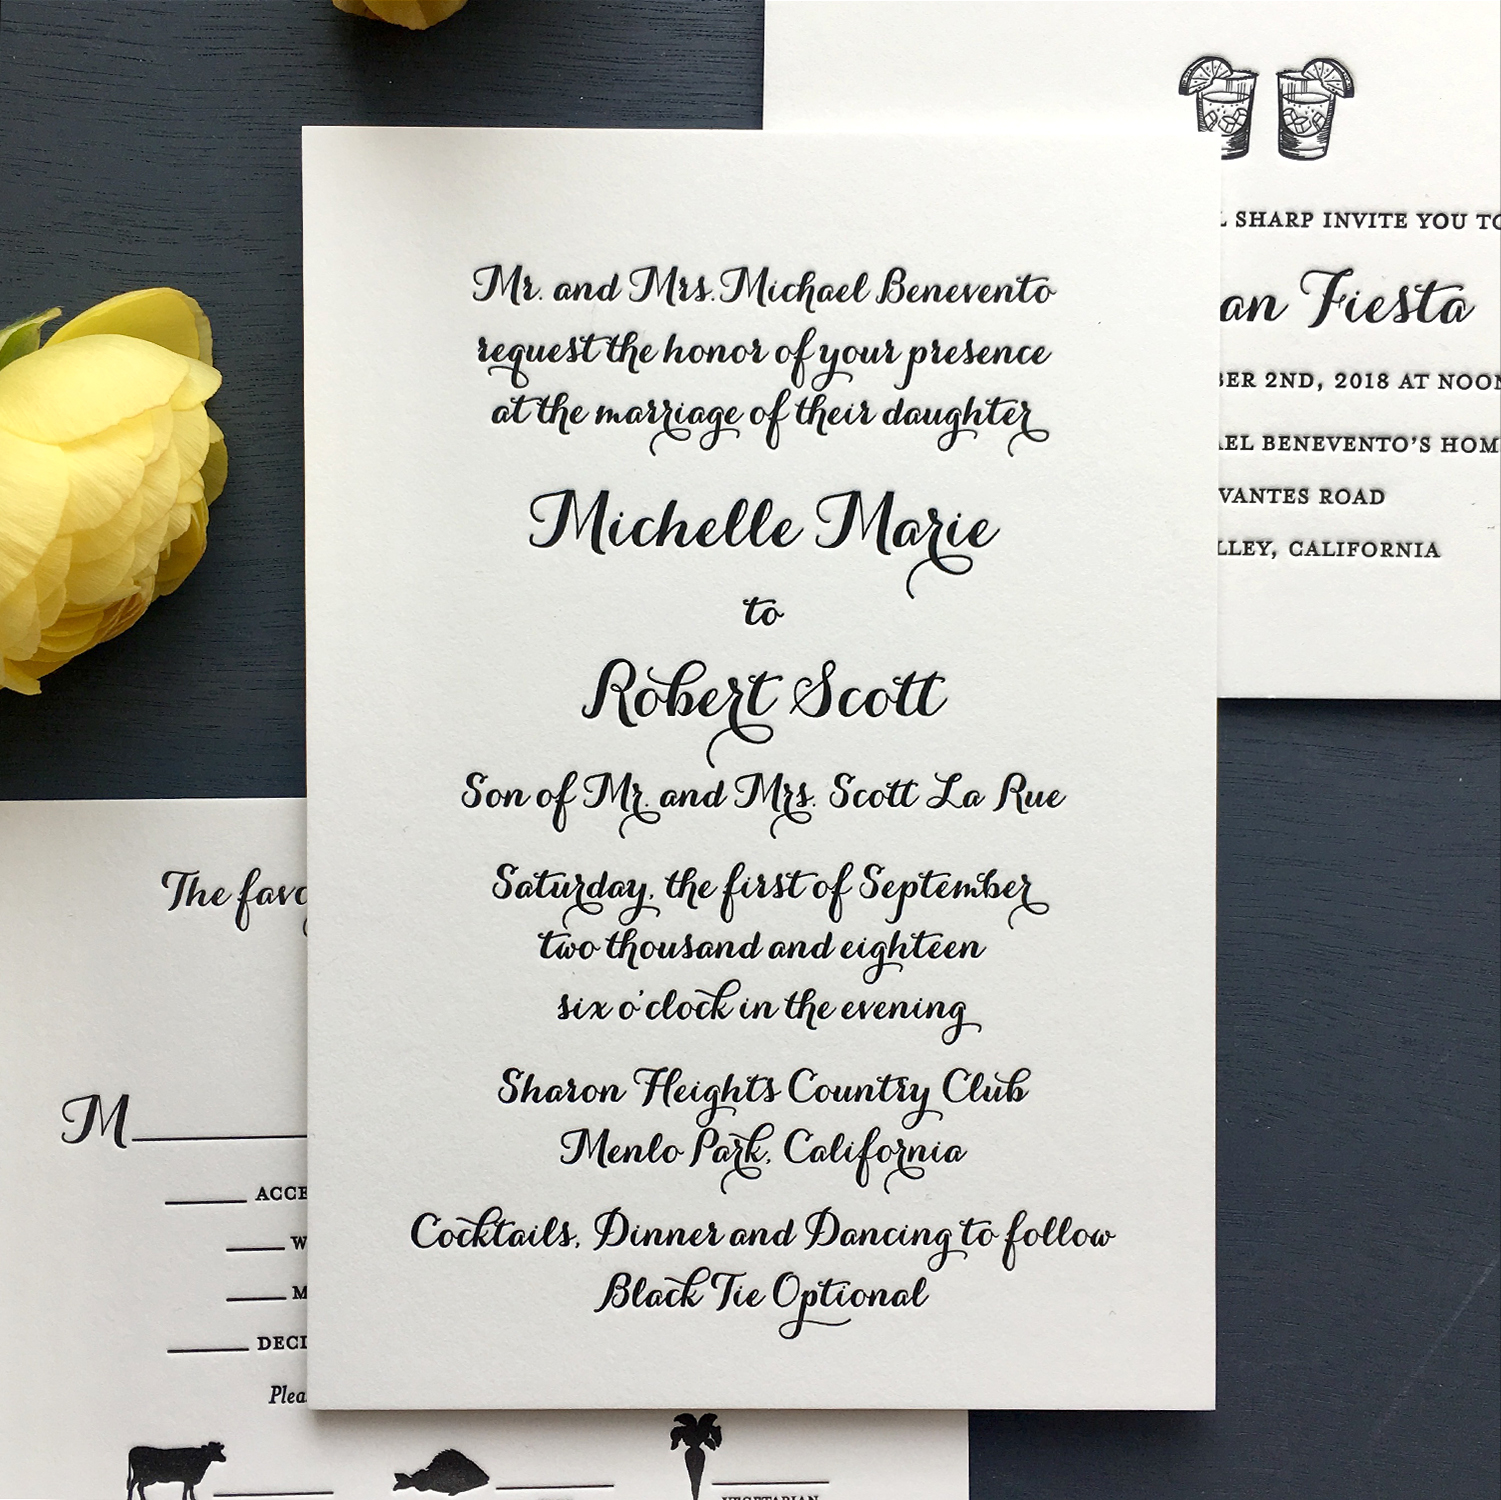 Mr. and Mrs. Michael Benevento
request the honor of your presence
at the marriage of their daughter
Michelle Marie
to
Robert Scott
Son of Mr. and Mrs. Scott La Rue
Saturday, the first of September
two thousand and eighteen
six o'clock in the evening
Sharon Heights Country Club
Menlo Park, California
Cocktails, Dinner and Dancing to follow
Black Tie Optional
SHARP INVITE YOU TO
Fiesta
2ND, 2018 AT NOON
BENEVENTO'S
ROAD
CALIFORNIA
The
M
VEGETARIAN